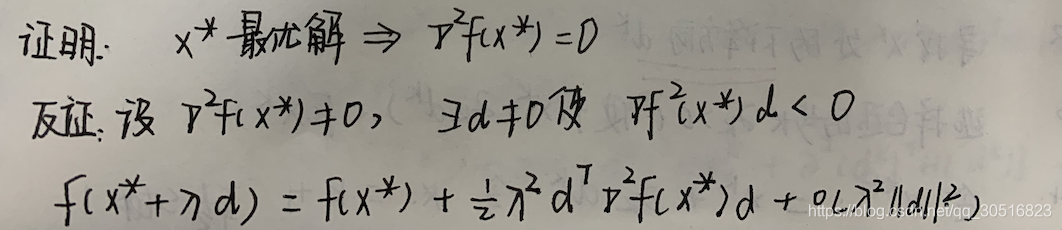 证明: x* 最优解 ⇒ ∇²f(x*)=0
反证: 设 ∇²f(x*)≠0, ∃d≠0使 ∇f²(x*)d<0
f(x*+λd) = f(x*) + ½λ²dᵀ∇²f(x*)d + o(λ²||d||²)
https://blog.csdn.net/qq_30516823